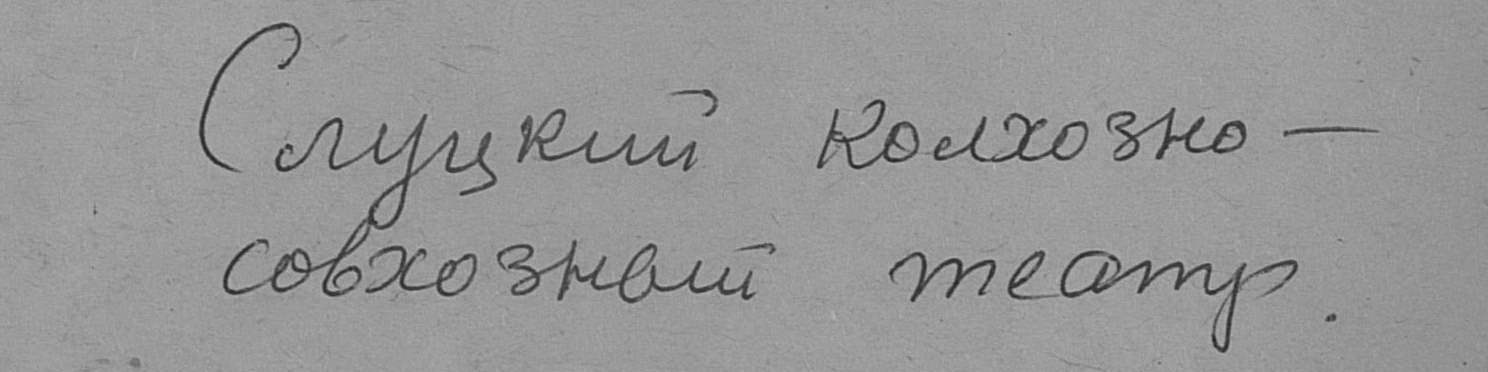 Слуцкий колхозно —
совхозный театр.